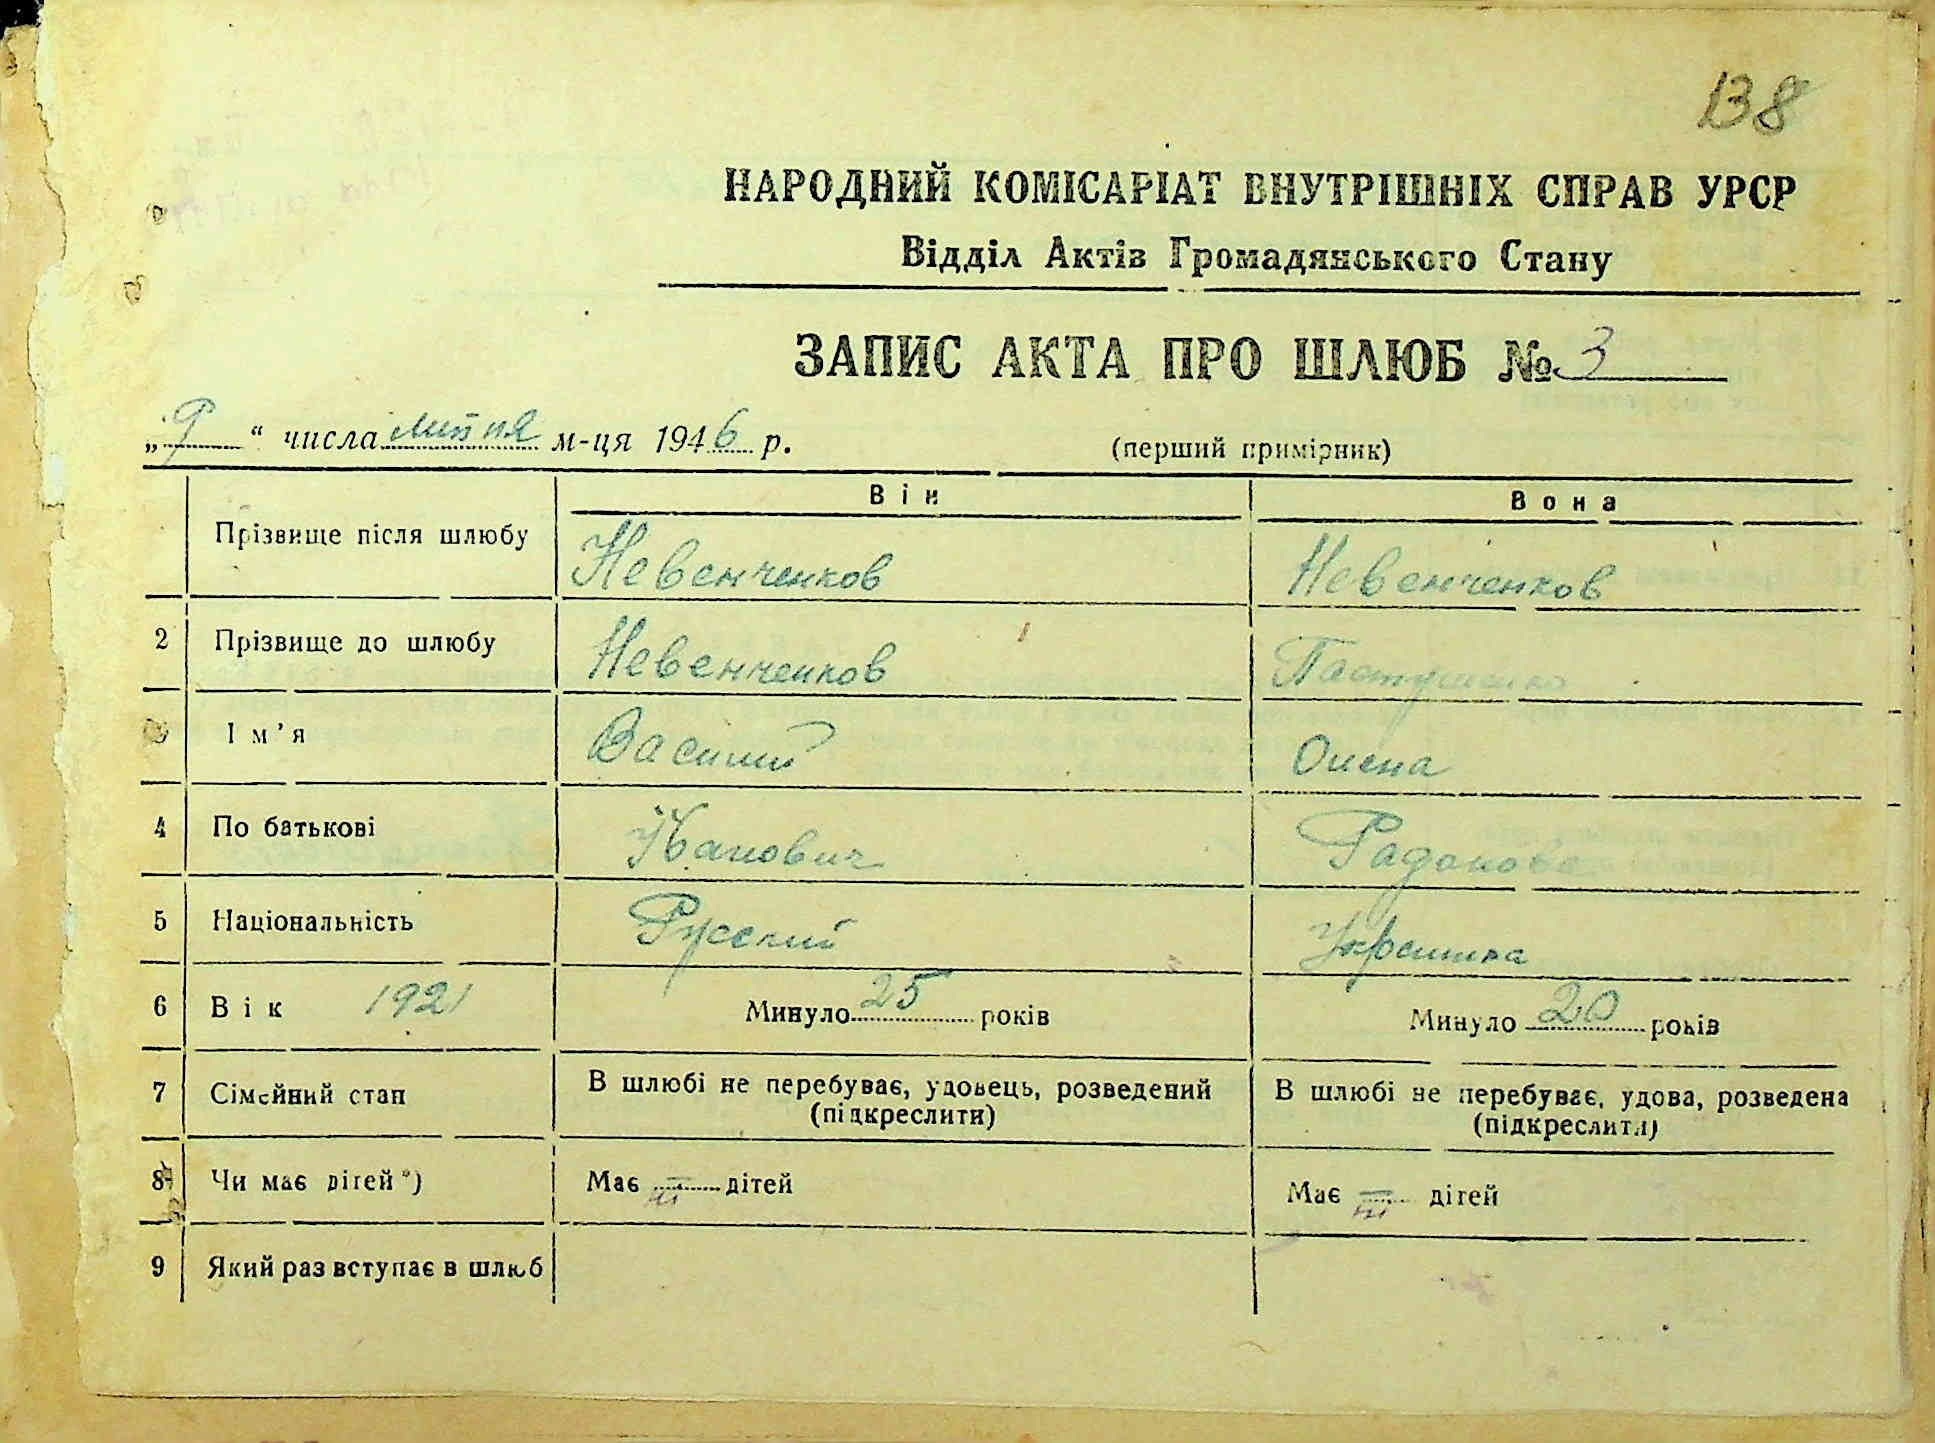 138
НАРОДНИЙ КОМІСАРІАТ ВНУТРІШНІХ СПРАВ УРСР
Відділ Актів Громадянського Стану
ЗАПИС АКТА ПРО ШЛЮБ № 3
„9“ числа липня м-ця 1946 р. (перший примірник)
Він Вона
Прізвище після шлюбу Невенченков Невенченков
2 Прізвище до шлюбу Невенченков Пастушенко
Ім'я Василий Олена
4 По батькові Иванович
5 Національність Русский Украинка
6 Вік 1921 Минуло 25 років Минуло 20 років
7 Сімейний стан В шлюбі не перебуває, удовець, розведений В шлюбі не перебуває, удова, розведена
(підкреслити) (підкреслити)
8 Чи має дітей*) Має ні дітей Має ні дітей
9 Який раз вступає в шлюб